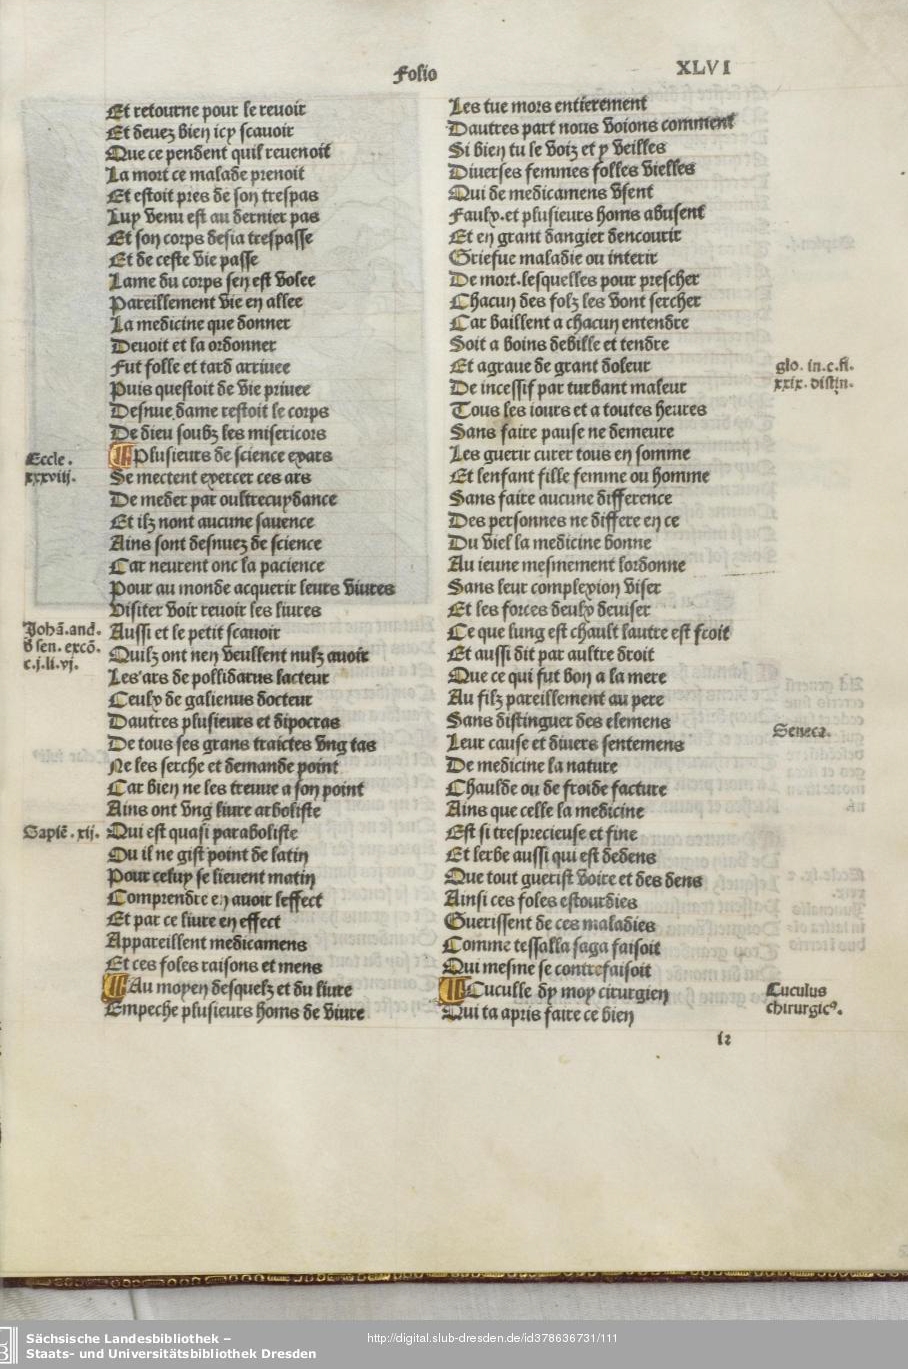 Folio
XLVI
Et retourne pour le revoir
Et devez bien icy scavoir
Que ce pendent quil revenoit
La mort ce malade prenoit
Et estoit pres de son trespas
Luy venu est au dernier pas
Et son corps desia trespasse
Et de ceste vie passe
Lame du corps sen est volee
Pareillement vie en allee
La medicine que donner
Devoit et la ordonner
Fut folle et tard arrivee
Puis questoit de vie privee
Desnue.dame restoit le corps
De dieu soubz les misericors
Eccle.
xxxviij.
Plusieurs de science expars
Se mectent exercer ces ars
De meder par oultrecuydance
Et ilz nont aucune savence
Ains sont desnuez de science
Car neurent onc la pacience
Pour au monde acquerir leurs vivres
Visiter voir revoir les livres
Johã.and.
d sen. excõ.
c.j.li.vj.
Aussi et le petit scavoir
Quilz ont nen veullent nulz avoir
Les ars de pollidarus lacteur
Ceulx de galienus docteur
Dautres plusieurs et dipocras
De tous ses grans traictes vng tas
Ne les serche et demande point
Car bien ne les treuve a son point
Ains ont vng livre arboliste
Sapiẽ. xij.
Qui est quasi paraboliste
Ou il ne gist point de latin
Pour celuy se lievent matin
Comprendre en avoir leffect
Et par ce livre en effect
Appareillent medicamens
Et ces foles raisons et mens
Au moyen desquelz et du livre
Empeche plusieurs homs de vivre
Les tue mors entierement
Dautres part nous voions comment
Si bien tu le voiz et y veilles
Diverses femmes folles vielles
Qui de medicamens vsent
Faulx.et plusieurs homs abusent
Et en grant dangier dencourir
Griefue maladie ou interir
De mort.lesquelles pour prescher
Chacun des folz les vont sercher
Car baillent a chacun entendre
Soit a boins debille et tendre
glo. in.c.fi.
xxix. distin.
Et agrave de grant doleur
De incessif par turbant maleur
Tous les iours et a toutes heures
Sans faire pause ne demeure
Les guerir curer tous en somme
Et lenfant fille femme ou homme
Sans faire aucune difference
Des personnes ne differe en ce
Du viel la medicine donne
Au ieune mesmement lordonne
Sans leur complexion viser
Et les forces deulx deviser
Ce que lung est chault lautre est froit
Et aussi dit par aultre droit
Que ce qui fut bon a la mere
Au filz pareillement au pere
Sans distinguer des elemens
Seneca.
Leur cause et divers sentemens
De medicine la nature
Chaulde ou de froide facture
Ains que celle la medicine
Est si tresprecieuse et fine
Et lerbe aussi qui est dedens
Que tout guerist voire et des dens
Ainsi ces foles estourdies
Guerissent de ces maladies
Comme tessalla saga faisoit
Qui mesme se contrefaisoit
Cuculus
chirurgicꝰ.
Cuculle dy moy cirurgien
Qui ta apris faire ce bien
Sächsische Landesbibliothek –
Staats- und Universitätsbibliothek Dresden
http://digital.slub-dresden.de/id378636731/111